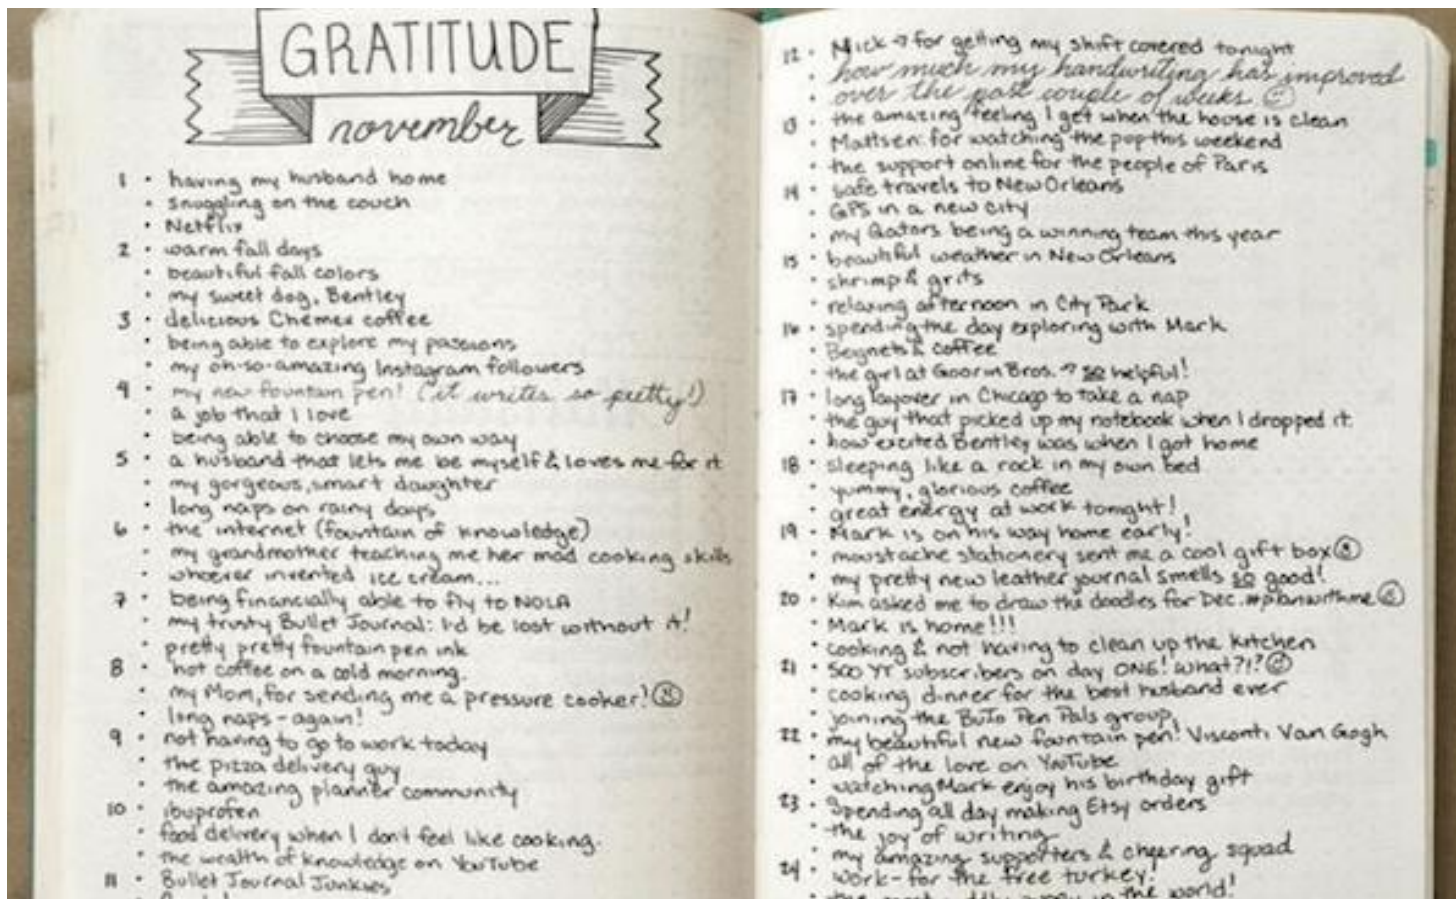 GRATITUDE
november
1 • having my husband home
• snuggling on the couch
• Netflix
2 • warm fall days
• beautiful fall colors
• my sweet dog, Bentley
3 • delicious Chemex coffee
• being able to explore my passions
• my oh-so-amazing Instagram followers
4 • my new fountain pen! (it writes so pretty!)
• a job that I love
• being able to choose my own way
5 • a husband that lets me be myself & loves me for it
• my gorgeous, smart daughter
• long naps on rainy days
6 • the internet (fountain of knowledge)
• my grandmother teaching me her mad cooking skills
• whoever invented ice cream...
7 • being financially able to fly to NOLA
• my trusty Bullet Journal: I'd be lost without it!
• pretty pretty fountain pen ink
8 • hot coffee on a cold morning.
• my Mom, for sending me a pressure cooker!
• long naps - again!
9 • not having to go to work today
• the pizza delivery guy
• the amazing planner community
10 • ibuprofen
• food delivery when I don't feel like cooking.
• the wealth of knowledge on YouTube
11 • Bullet Journal Junkies
12 • Mick → for getting my shift covered tonight
• how much my handwriting has improved
• over the past couple of weeks ☺
13 • the amazing feeling I get when the house is clean
• Mattsen: for watching the pop this weekend
• the support online for the people of Paris
14 • safe travels to New Orleans
• GPS in a new city
• my Gators being a winning team this year
15 • beautiful weather in New Orleans
• shrimp & grits
• relaxing afternoon in City Park
16 • spending the day exploring with Mark
• Beignets & coffee
• the girl at Goorin Bros. → so helpful!
17 • long layover in Chicago to take a nap
• the guy that picked up my notebook when I dropped it.
• how excited Bentley was when I got home
18 • sleeping like a rock in my own bed
• yummy, glorious coffee
• great energy at work tonight!
19 • Mark is on his way home early!
• moustache stationery sent me a cool gift box
• my pretty new leather journal smells so good!
20 • Kim asked me to draw the doodles for Dec. #planwithme
• Mark is home!!!
• cooking & not having to clean up the kitchen
21 • 500 YT subscribers on day ONE! What?!?
• cooking dinner for the best husband ever
• joining the BuJo Pen Pals group
22 • my beautiful new fountain pen! Visconti Van Gogh
• all of the love on YouTube
• watching Mark enjoy his birthday gift
23 • Spending all day making Etsy orders
• the joy of writing
• my amazing supporters & cheering squad
24 • work - for the free turkey!
in the world!